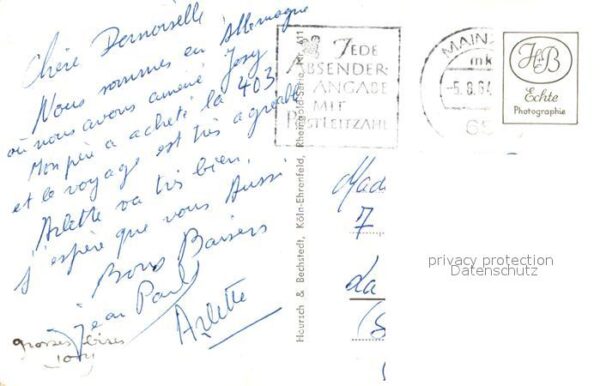 Chère Demoiselle
Nous sommes en Allemagne
où nous avons amené Josy
Mon père a acheté la 403
et le voyage est très agréable
Arlette va très bien.
j'espère que vous Aussi
Bons Baisers
Jean Paul
Arlette
grosses bises
Josy
JEDE
ABSENDER-
ANGABE
MIT
POSTLEITZAHL
MAIN
-5.8.64
65
HB
Echte
Photographie
Hoursch & Bechstedt, Köln-Ehrenfeld, Rheingold-Serie, Nr. 611
Mad
7
La
privacy protection
Datenschutz